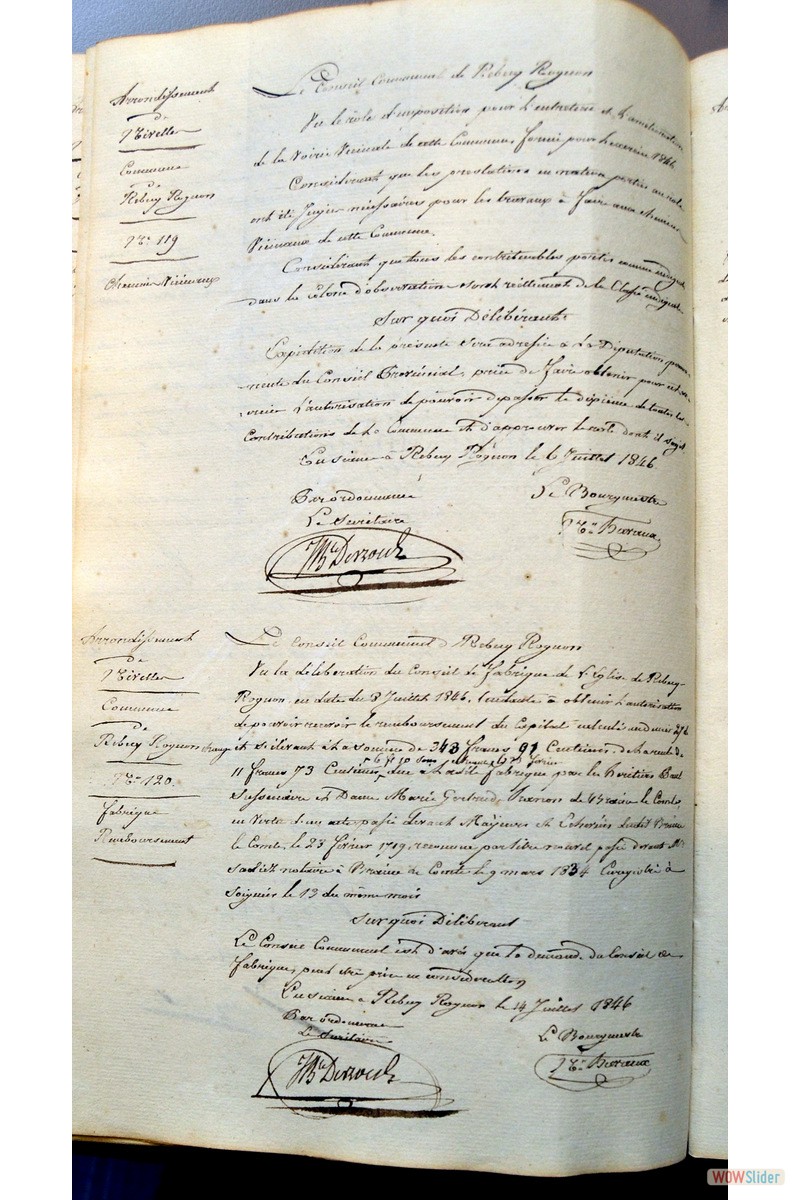 Arrondissement
de
Nivelles
Commune
de
Rebecq Rognon
N° 119
Chemins Vicinaux
Le Conseil Communal de Rebecq Rognon
Vu le rôle d'imposition pour l'entretien et l'amélioration
de la Voirie Vicinale de cette Commune, formé pour l'exercice 1846
Considérant que les prestations en nature portées au rôle
ont été jugées nécessaires pour les travaux à faire aux chemins
Vicinaux de cette Commune.
Considérant que tous les contribuables portés comme indigents
dans la Colone d'observations sont réellement de la Classe indigente
Sur quoi Délibérant
Expédition de la présente sera adressée à la Députation perma-
nente du Conseil Provincial, priée de faire obtenir pour
l'autorisation de pouvoir dépasser le dixième de toutes les
Contributions de la Commune et d'approuver le rôle dont il s'agit
En séance à Rebecq Rognon le 6 Juillet 1846
Par ordonnance
Le Secrétaire
Le Bourgmestre
Arrondissement
de
Nivelles
Commune
de
Rebecq Rognon
N° 120
Fabrique
Remboursement
Le Conseil Communal d Rebecq Rognon
Vu la délibération du Conseil de fabrique de l'Eglise de Rebecq-
Rognon en date du 3 Juillet 1846, tendante à obtenir l'autorisation
de pouvoir recevoir le remboursement du Capital calculé au denier
et s'élevant à la somme de 343 francs 91 Centimes, de la rente de
11 francs 73 Centimes, due à la dite fabrique par les héritiers
et Dame Marie Gertrude de Braine le Comte,
en Vertu d'un acte passé devant Majeurs et Echevins dudit Braine
le Comte, le 23 février 1719, reconnue par titre nouvel passé devant Mr
notaire à Braine le Comte le 9 mars 1834 Enregistré à
Soignies le 13 du même mois
Sur quoi Délibérant
Le Conseil Communal est d'avis que la demande du Conseil de
fabrique, peut être prise en considération
En séance à Rebecq Rognon le 14 Juillet 1846
Par ordonnance
Le Secrétaire
Le Bourgmestre
WOWSlider